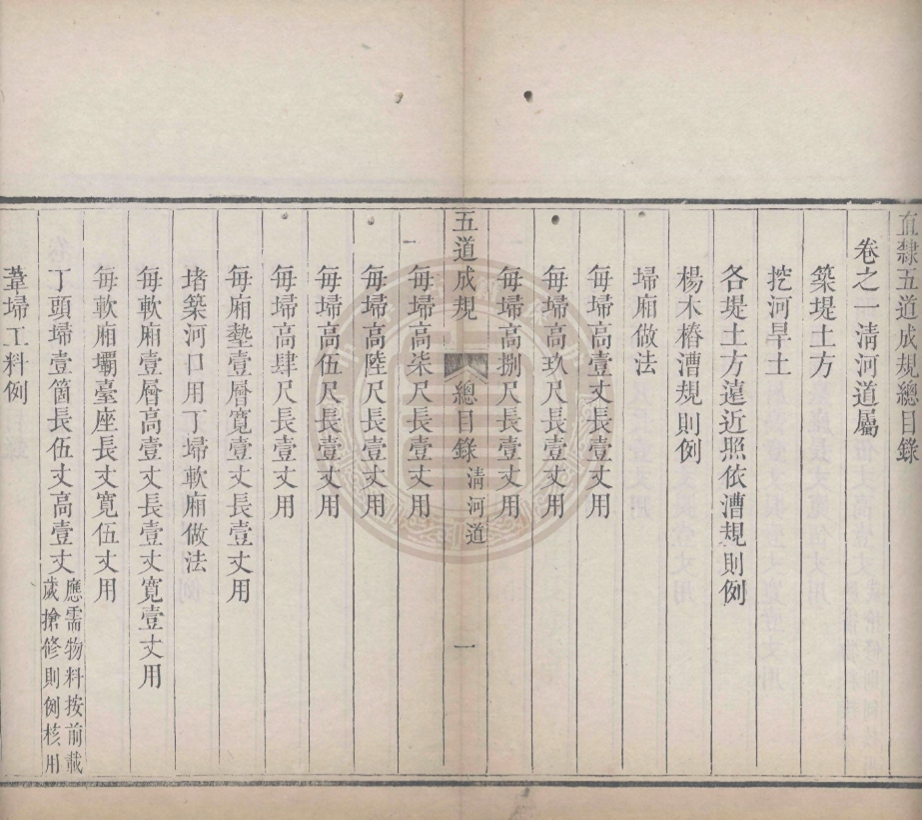 直隸五道成規總目錄
卷之一清河道屬
築堤土方
挖河旱土
各堤土方遠近照依漕規則例
楊木樁漕規則例
埽廂做法
每埽高壹丈長壹丈用
每埽高玖尺長壹丈用
每埽高捌尺長壹丈用
五道成規 總目錄 清河道 一
每埽高柒尺長壹丈用
每埽高陸尺長壹丈用
每埽高伍尺長壹丈用
每埽高肆尺長壹丈用
每廂墊壹層寬壹丈長壹丈用
堵築河口用丁埽軟廂做法
每軟廂壹層高壹丈長壹丈寬壹丈用
每軟廂壩臺座長丈寬伍丈用
丁頭埽壹箇長伍丈高壹丈應需物料按前載
歲搶修則例核用
葦埽工料例